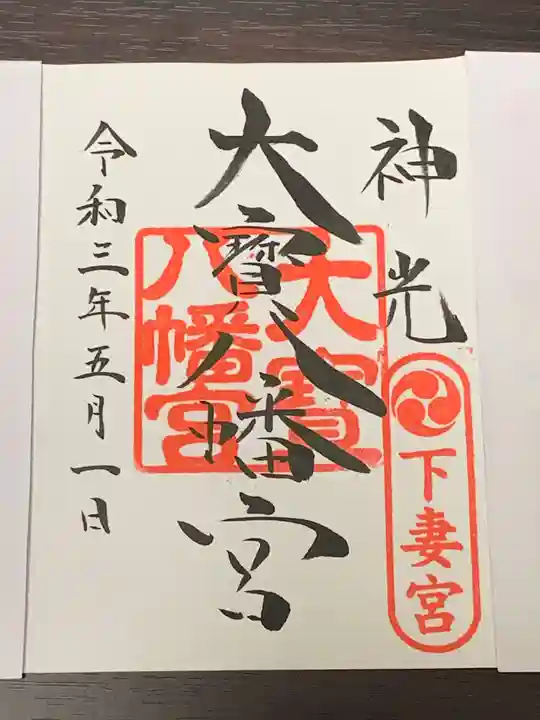 神光
下妻宮
大寳八幡宮
大寳
八幡宮
令和三年五月一日